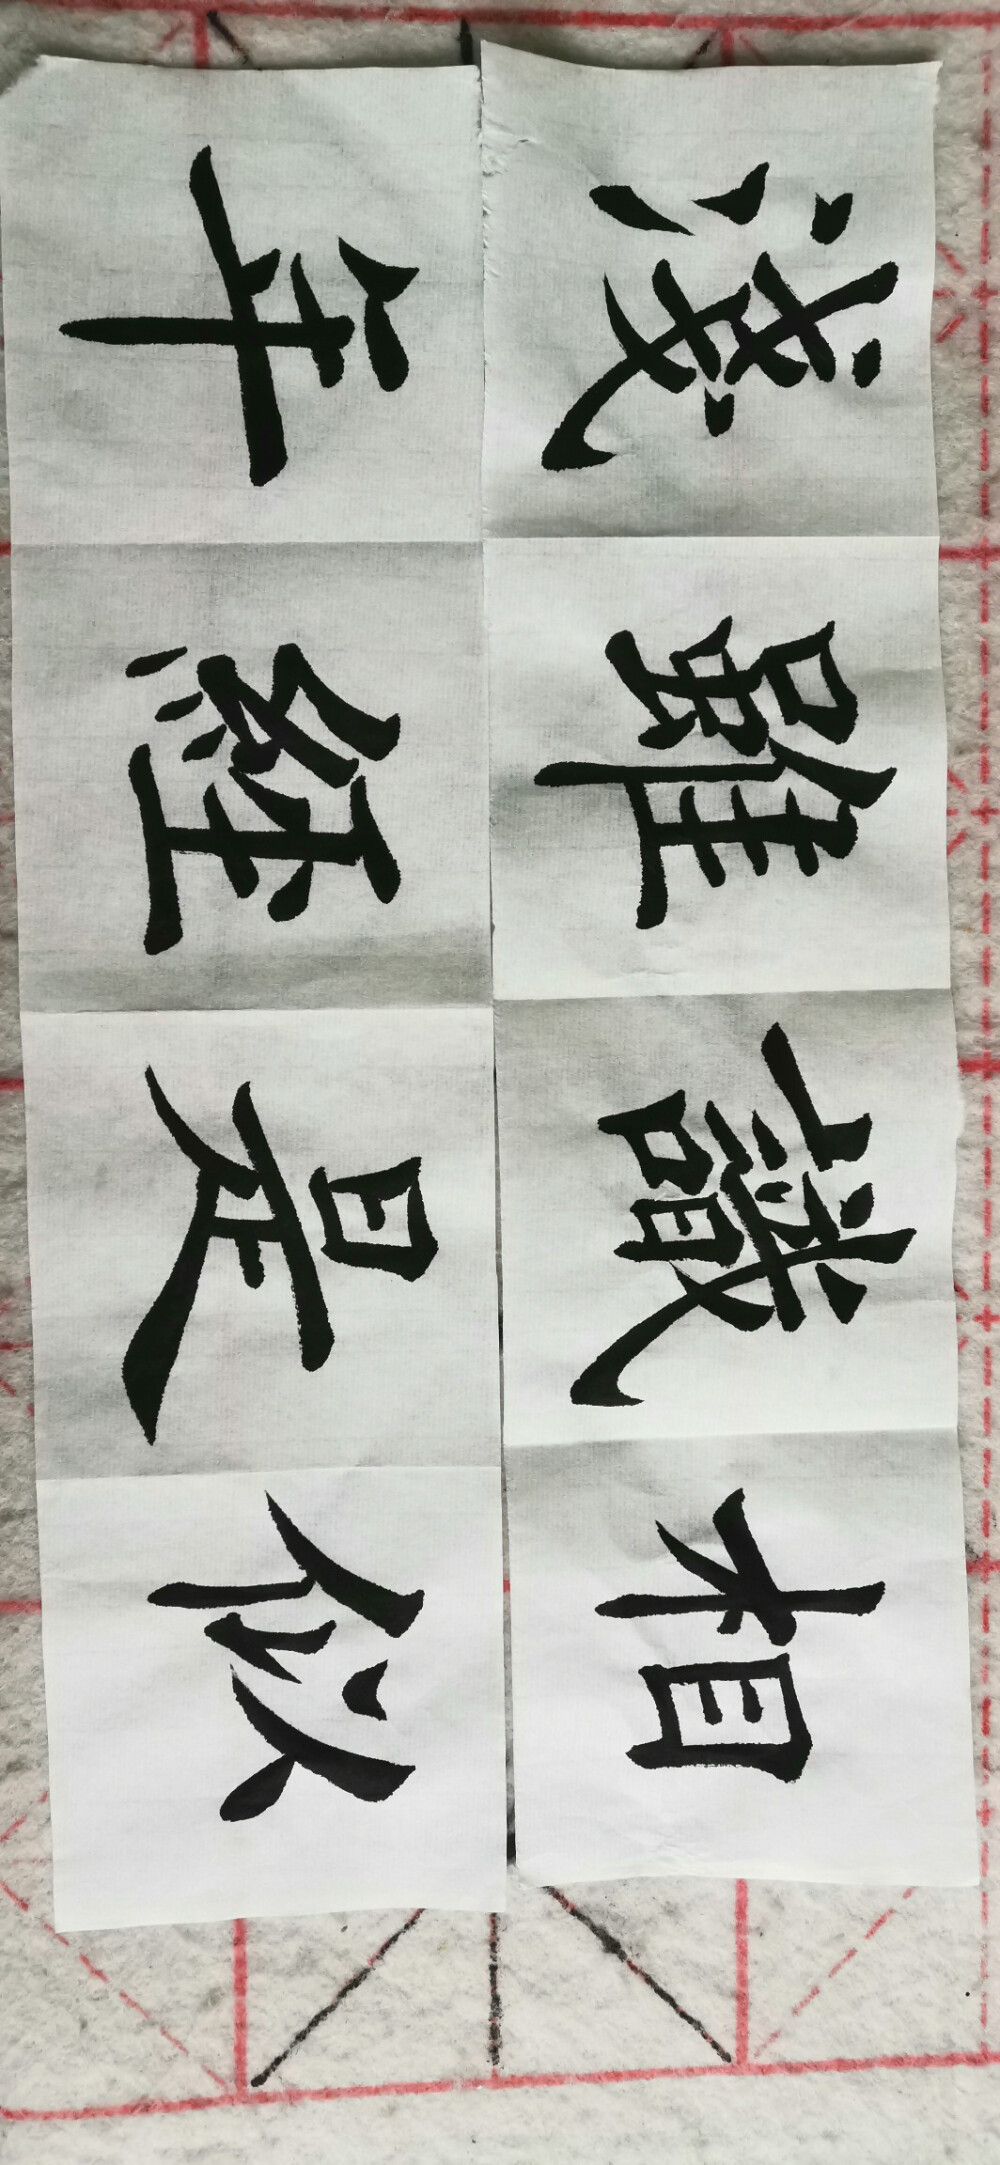 相識雖淺
似是經年